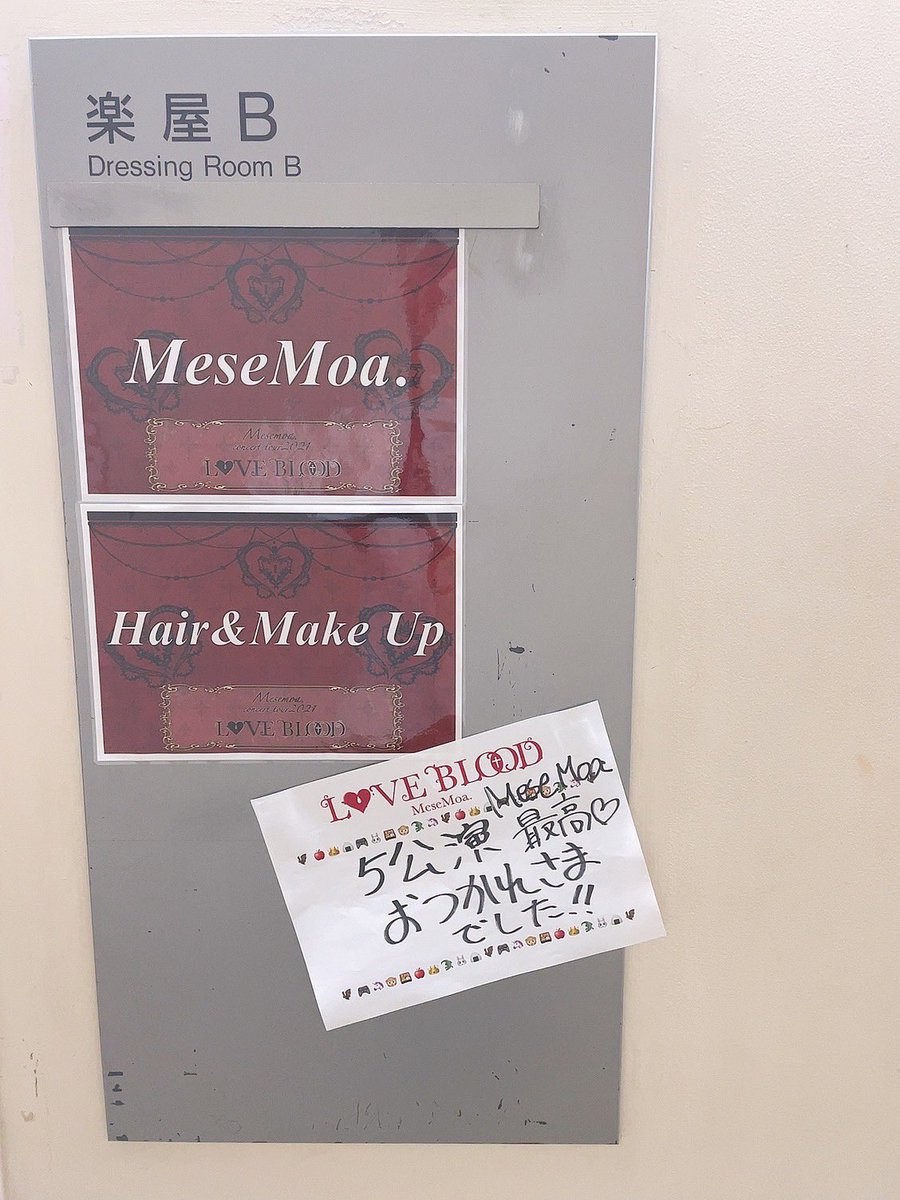 楽屋B
Dressing Room B
MeseMoa.
Mesemoa.
concert tour2021
LOVE BLOOD
Hair&Make Up
Mesemoa.
concert tour2021
LOVE BLOOD
LOVE BLOOD
MeseMoa.
MeseMoa
5公演 最高♡
おつかれさま
でした!!